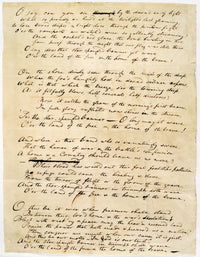 O say can you see by the dawn's early light
What so proudly we hail'd at the twilight's last gleaming,
Whose broad stripes & bright stars through the perilous fight
O'er the ramparts we watch'd, were so gallantly streaming?
And the rocket's red glare, the bomb bursting in air,
Gave proof through the night that our flag was still there
O say does that star-spangled banner yet wave
O'er the land of the free & the home of the brave?
On the shore dimly seen through the mists of the deep,
Where the foe's haughty host in dread silence reposes,
What is that which the breeze, o'er the towering steep,
As it fitfully blows, half conceals, half discloses?
Now it catches the gleam of the morning's first beam,
In full glory reflected now shines in the stream,
'Tis the star-spangled banner - O long may it wave
O'er the land of the free & the home of the brave!
And where is that band who so vauntingly swore,
That the havoc of war & the battle's confusion
A home & a Country should leave us no more?
Their blood has wash'd out their foul footstep's pollution
No refuge could save the hireling & slave
From the terror of flight or the gloom of the grave,
And the star-spangled banner in triumph doth wave
O'er the land of the free & the home of the brave.
O thus be it ever when freemen shall stand
Between their lov'd home & the war's desolation!
Blest with vict'ry & peace may the heav'n rescued land
Praise the power that hath made & preserv'd us a nation!
Then conquer we must, when our cause it is just,
And this be our motto - "In God is our trust,"
And the star-spangled banner in triumph shall wave
O'er the land of the free & the home of the brave.